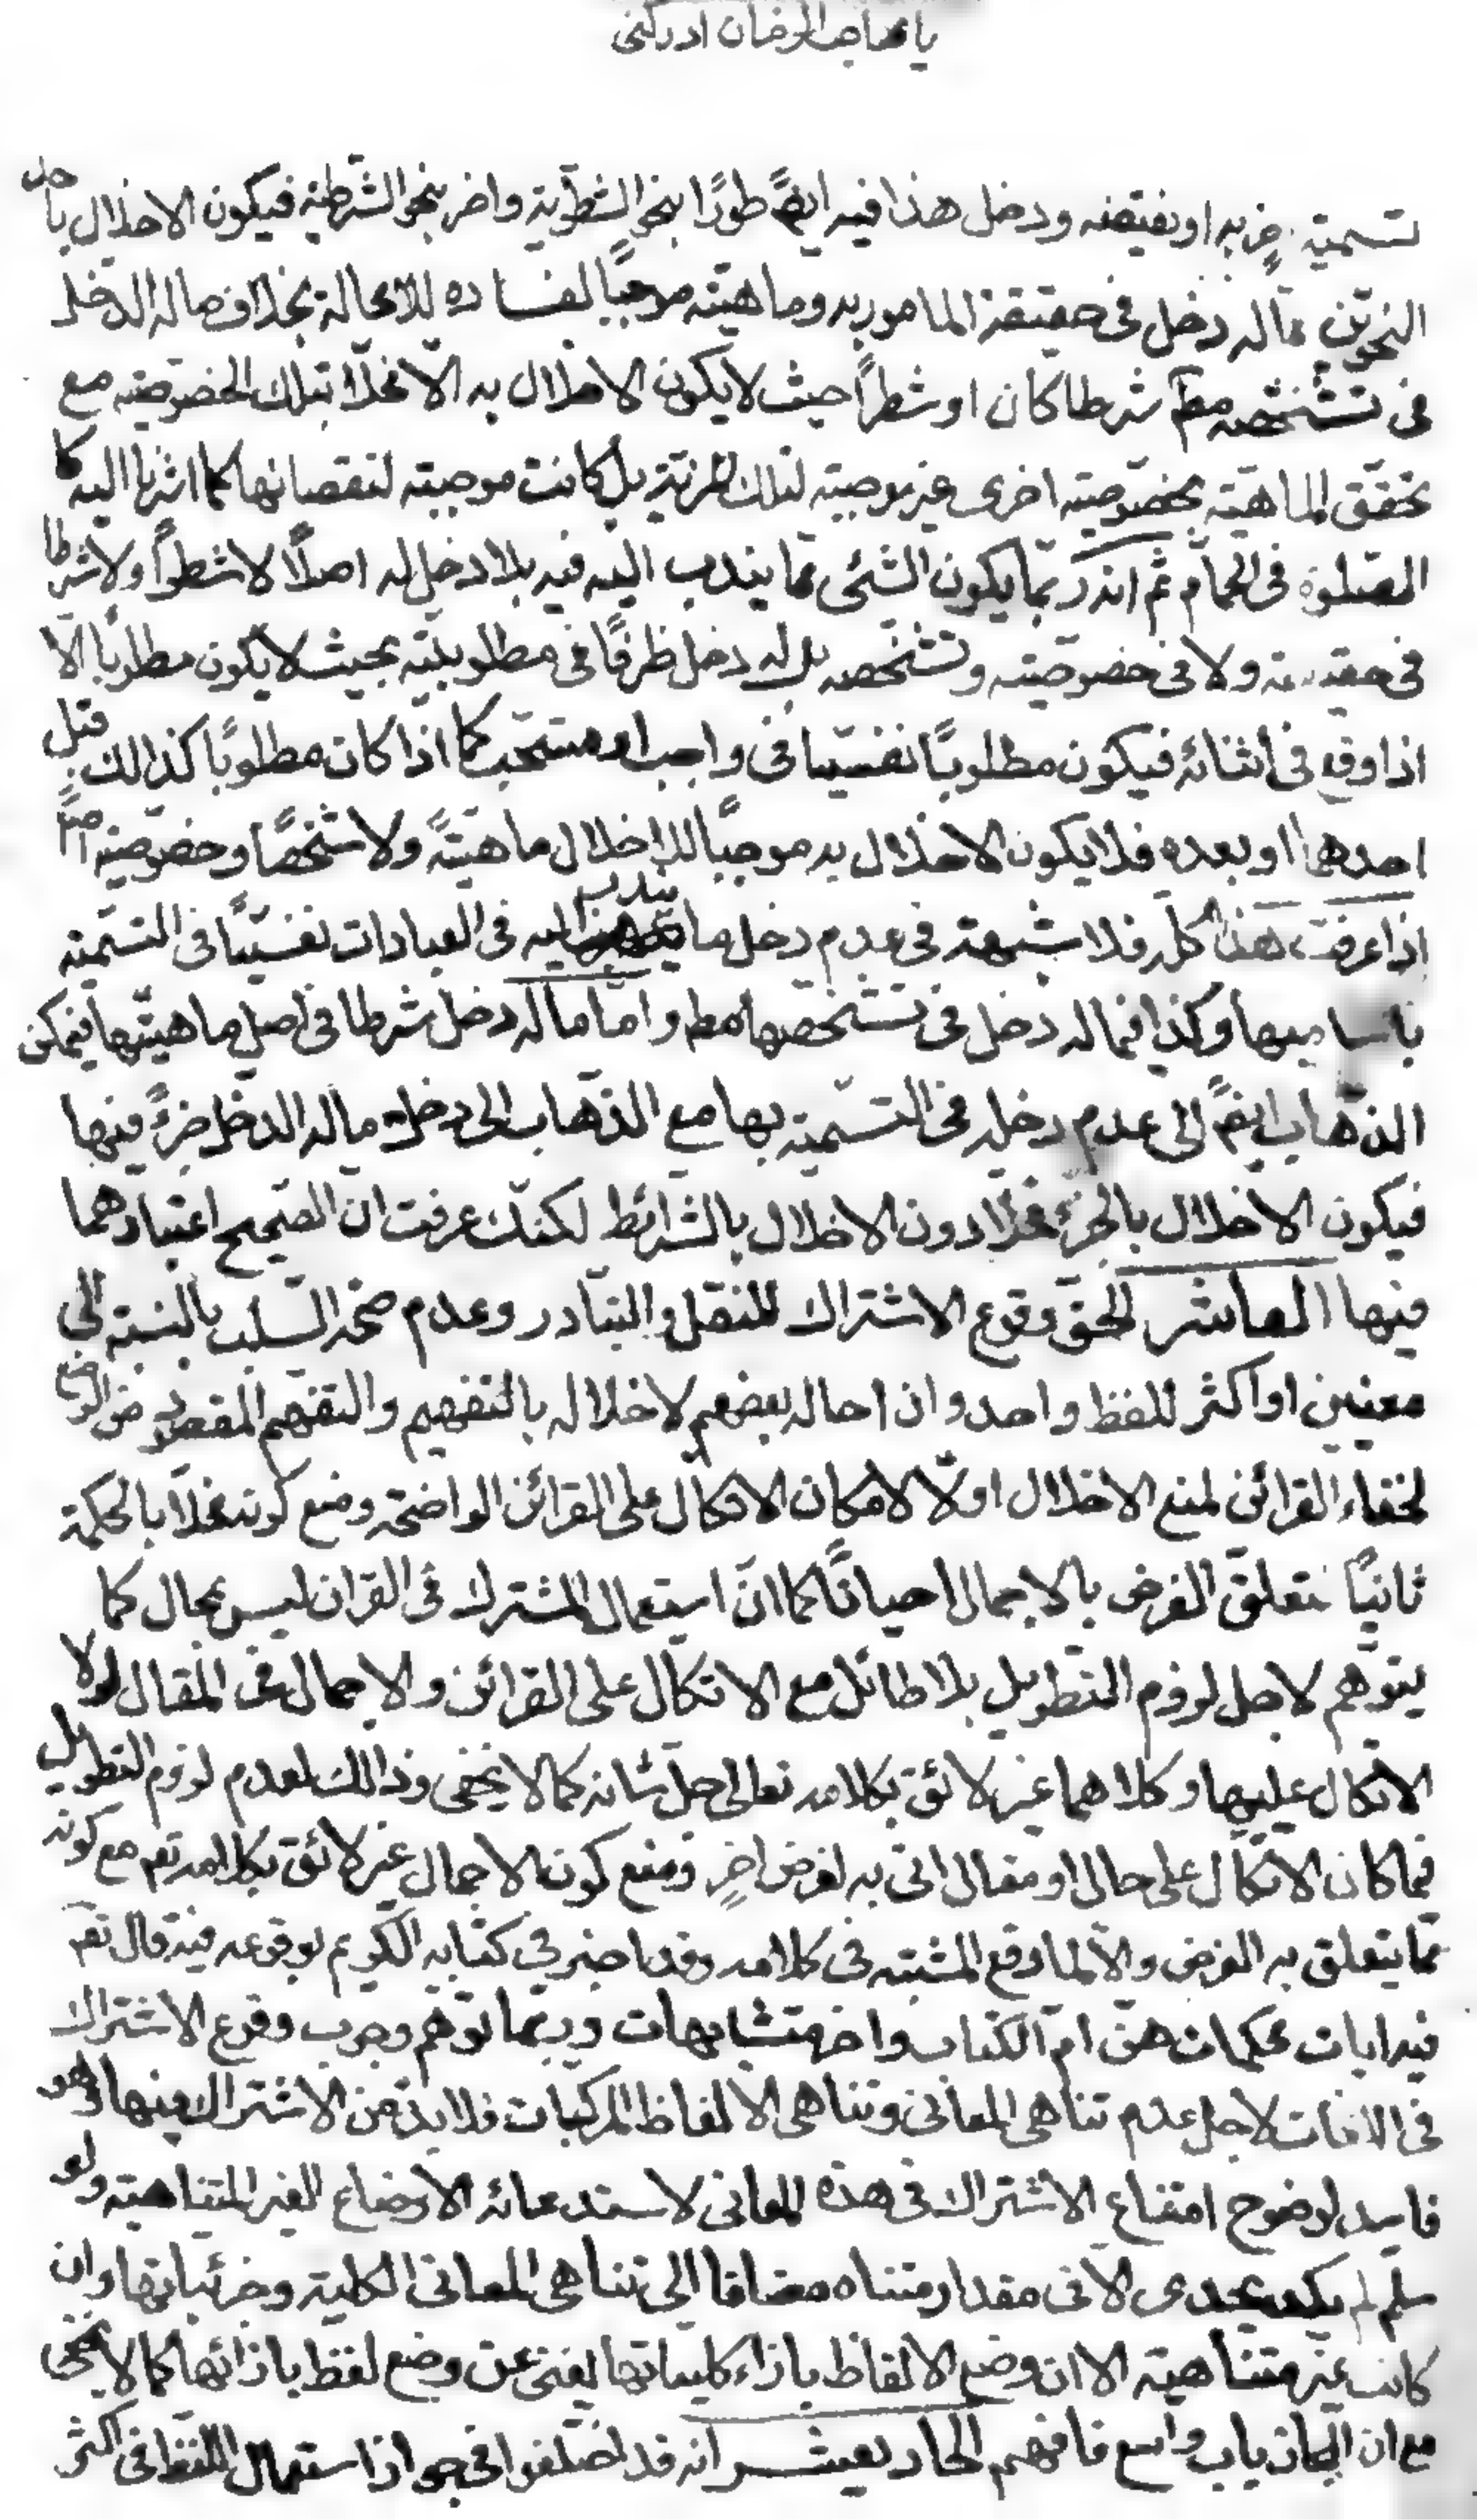 يا صاحب الزمان ادركني
تسميته جزء به او نقيصه ودخل هذا فيه ايضً طورًا بنحو الشطرية واخر بنحو الشرطية فيكون الاخلال باحد
النحوين مما له دخل فى حقيقة المامور به وماهيته موجبًا لفساده لا محالة بخلاف ما له الدخل
فى تشخصه مطم شرطا كان او شطراً حيث لا يكون الاخلال به الا اخلالا بتلك الخصوصيته مع
تحقق الماهيته بخصوصيته اخرى غير موجبته لتلك المزية بل كانت موجبته لنقصانها كما اشرنا اليه كا
الصلوة فى الحمام ثم انه ربما يكون الشئى مما يندب اليه فيه بلا دخل له اصلاً لا شطراً ولا شرطا
فى حقيقته ولا فى خصوصيته وتشخصه بل له دخل ظرفًا فى مطلوبيته بحيث لا يكون مطلوبًا الا
اذا وقع فى اثنائه فيكون مطلوبًا نفسيا فى واجب او مستحب كما اذا كان مطلوبًا كذالك قبل
احدهما او بعده فلا يكون الاخلال به موجبًا للاخلال ماهيتهً ولا تشخصًا وخصوصيته اصلًا
اذا عرفت هذا كله فلا شبهته فى عدم دخل ما يندب اليه فى العبادات نفسيًا فى التسميته
باساميها وكذا فيما له دخل فى تشخصها مطه واما ما له دخل شرطا فى اصل ماهيتها فيمكن
الذهاب ايضً الى عدم دخله فى التسميته بها مع الذهاب الى دخل ما له الدخل جزءً فيها
فيكون الاخلال بالجزء مخلا دون الاخلال بالشرائط لكنك عرفت ان الصحيح اعتبارهما
فيها العاشر الحق وقوع الاشتراك للنقل والتبادر وعدم صحة السلب بالنسبته الى
معنيين او اكثر للفظ واحد وان احاله بعضهم لاخلاله بالتفهيم والتفهم المقصود من الوضع
لخفاء القرائن لمنع الاخلال اولًا لامكان الاتكال على القرائن الواضحته ومنع كونه مخلاً بالحكمة
ثانيًا لتعلق الغرض بالاجمال احيانًا كما انّ استعمال المشترك فى القران ليس بمحال كما
يتوهم لاجل لزوم التطويل بلا طائل مع الاتكال على القرائن والاجمال فى المقال لولا
الاتكال عليها وكلاهما غير لائق بكلامه تعالى جل شانه كما لا يخفى وذالك لعدم لزوم التطويل
فيما كان الاتكال على حال او مقال اتى به لغرض اخرٍ ومنع كون الاجمال غير لائق بكلامه تعم مع كونه
مما يتعلق به الغرض والا لما وقع المشتبه فى كلامه وقد اخبر فى كتابه الكريم بوقوعه فيه قال تعم
فيه ايات محكمات هن ام الكتاب واخر متشابهات وربما توهم وجوب وقوع الاشتراك
فى اللغات لاجل عدم تناهى المعانى وتناهى الالفاظ المركبات فلا بد من الاشتراك فيها وهو
فاسد لوضوح امتناع الاشتراك فى هذه المعانى لاستدعائه الاوضاع الغير المتناهيته ولو
سلم لم يكد يجدى الا فى مقدار متناه مضافا الى تناهى المعانى الكلية وجزئياتها وان
كانت غير متناهيته الا ان وضع الالفاظ بازاء كلياتها يغنى عن وضع لفظ بازائها كما لا يخفى
مع ان المجاز باب واسع فافهم الحاديعشر انه قد اختلفوا فى جواز استعمال اللفظ فى اكثر